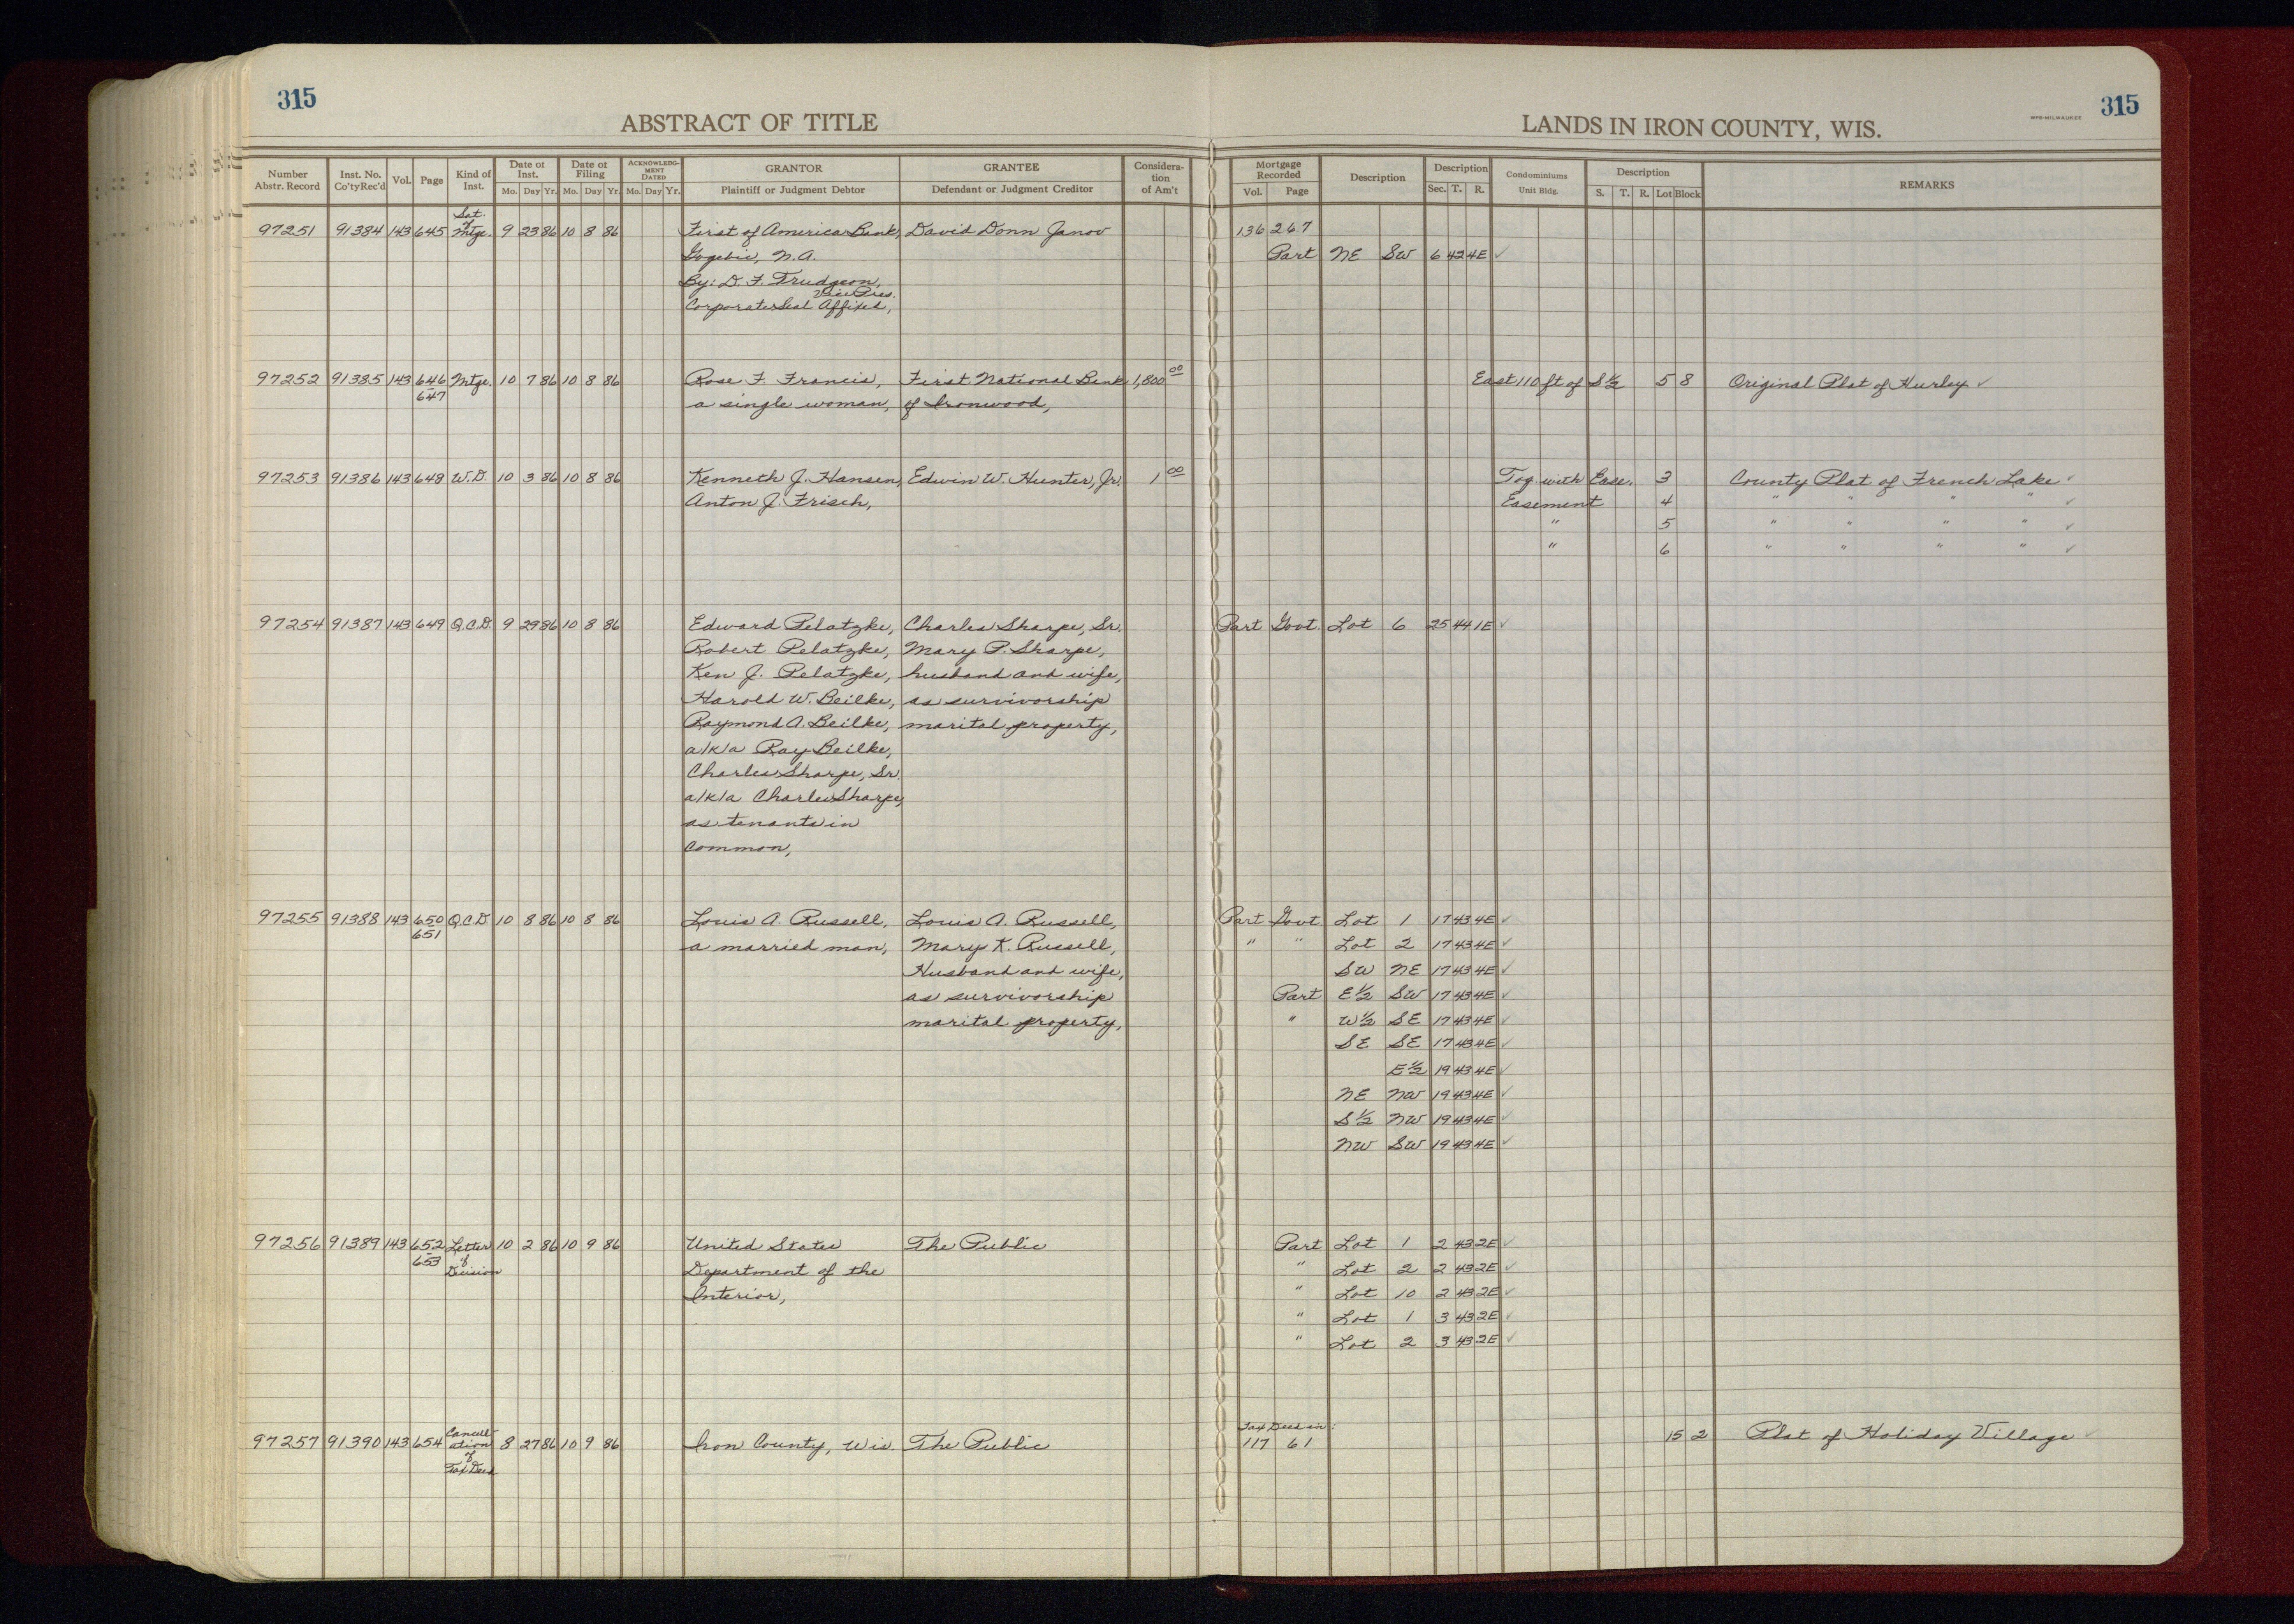 315
315
ABSTRACT OF TITLE
LANDS IN IRON COUNTY, WIS.
WPB-MILWAUKEE
Number Abstr. Record | Inst. No. Co'ty Rec'd | Vol. | Page | Kind of Inst. | Date of Inst. Mo. Day Yr. | Date of Filing Mo. Day Yr. | ACKNOWLEDGMENT DATED Mo. Day Yr. | GRANTOR Plaintiff or Judgment Debtor | GRANTEE Defendant or Judgment Creditor | Consideration of Am't | Mortgage Recorded Vol. Page | Description | Description Sec. T. R. | Condominiums Unit Bldg. | Description S. T. R. Lot Block | REMARKS
97251 91384 143 645 Sat. of Mtge. 9 23 86 10 8 86 First of America Bank, David Donn Janov 136 267
Gogebic, N.A. Part NE SW 6 42 4E ✓
By: D. F. Trudgeon,
Vice Pres.
Corporate Seal Affixed,
97252 91385 143 646 Mtge. 10 7 86 10 8 86 Rose F. Francis, First National Bank 1,800 00 East 110 ft of S ½ 5 8 Original Plat of Hurley ✓
647 a single woman, of Ironwood,
97253 91386 143 648 W.D. 10 3 86 10 8 86 Kenneth J. Hansen, Edwin W. Hunter, Jr. 1 00 Tog. with Ease. 3 County Plat of French Lake ✓
Anton J. Frisch, Easement 4 " " " " ✓
" 5 " " " " ✓
" 6 " " " " ✓
97254 91387 143 649 Q.C.D. 9 29 86 10 8 86 Edward Pelatzke, Charles Sharpe, Sr. Part Govt. Lot 6 25 44 1E ✓
Robert Pelatzke, Mary P. Sharpe,
Ken J. Pelatzke, husband and wife,
Harold W. Beilke, as survivorship
Raymond A. Beilke, marital property,
a/k/a Ray Beilke,
Charles Sharpe, Sr.
a/k/a Charles Sharpe,
as tenants in
common,
97255 91388 143 650 Q.C.D. 10 8 86 10 8 86 Louis A. Russell, Louis A. Russell, Part Govt. Lot 1 17 43 4E ✓
651 a married man, Mary K. Russell, " " Lot 2 17 43 4E ✓
Husband and wife, SW NE 17 43 4E ✓
as survivorship Part E½ SW 17 43 4E ✓
marital property, " W½ SE 17 43 4E ✓
SE SE 17 43 4E ✓
E½ 19 43 4E ✓
NE NW 19 43 4E ✓
S½ NW 19 43 4E ✓
NW SW 19 43 4E ✓
97256 91389 143 652 Letter of Decision 10 2 86 10 9 86 United States The Public Part Lot 1 2 43 2E ✓
653 Department of the " Lot 2 2 43 2E ✓
Interior, " Lot 10 2 43 2E ✓
" Lot 1 3 43 2E ✓
" Lot 2 3 43 2E ✓
Tax Deed in:
97257 91390 143 654 Cancellation of Tax Deed 8 27 86 10 9 86 Iron County, Wis. The Public 117 61 15 2 Plat of Holiday Village ✓